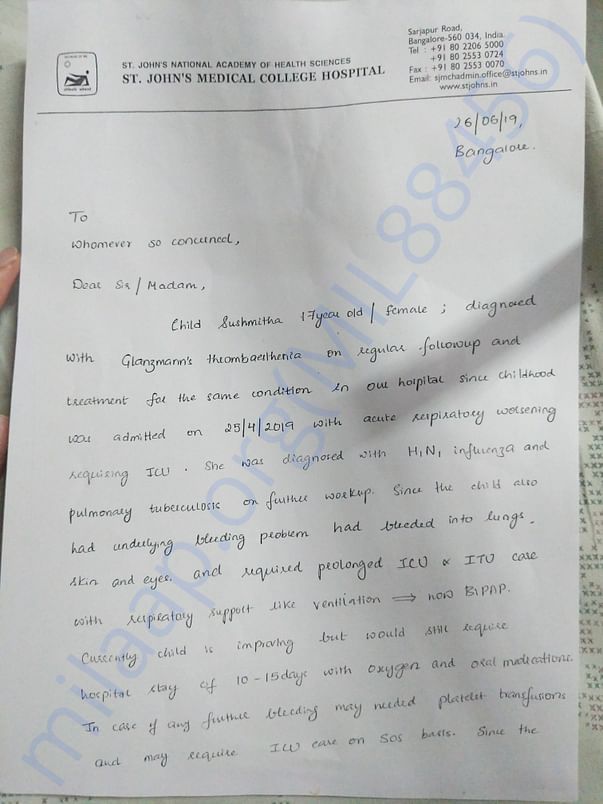 ST. JOHN'S NATIONAL ACADEMY OF HEALTH SCIENCES
ST. JOHN'S MEDICAL COLLEGE HOSPITAL
Sarjapur Road,
Bangalore-560 034, India.
Tel : +91 80 2206 5000
+91 80 2553 0724
Fax : +91 80 2553 0070
Email: sjmchadmin.office@stjohns.in
www.stjohns.in
26/06/19,
Bangalore.
To
Whomever so concerned,
Dear Sir / Madam,
Child Sushmitha 17year old / female ; diagnosed
with Glanzmann's thrombaesthenia on regular followup and
treatment for the same condition in our hospital since childhood
was admitted on 25/4/2019 with acute respiratory worsening
requiring ICU . She was diagnosed with H1N1 influenza and
pulmonary tuberculosis on further workup. Since the child also
had underlying bleeding problem had bleeded into lungs,
skin and eyes. and required prolonged ICU & ITU care
with respiratory support like ventilation ⟹ now BIPAP.
Currently child is improving but would still require
hospital stay of 10-15days with oxygen and oral medications.
In case of any further bleeding may needed platelet transfusions
and may require ICU care on SOS basis. Since the
milaap.org(MIL88456)